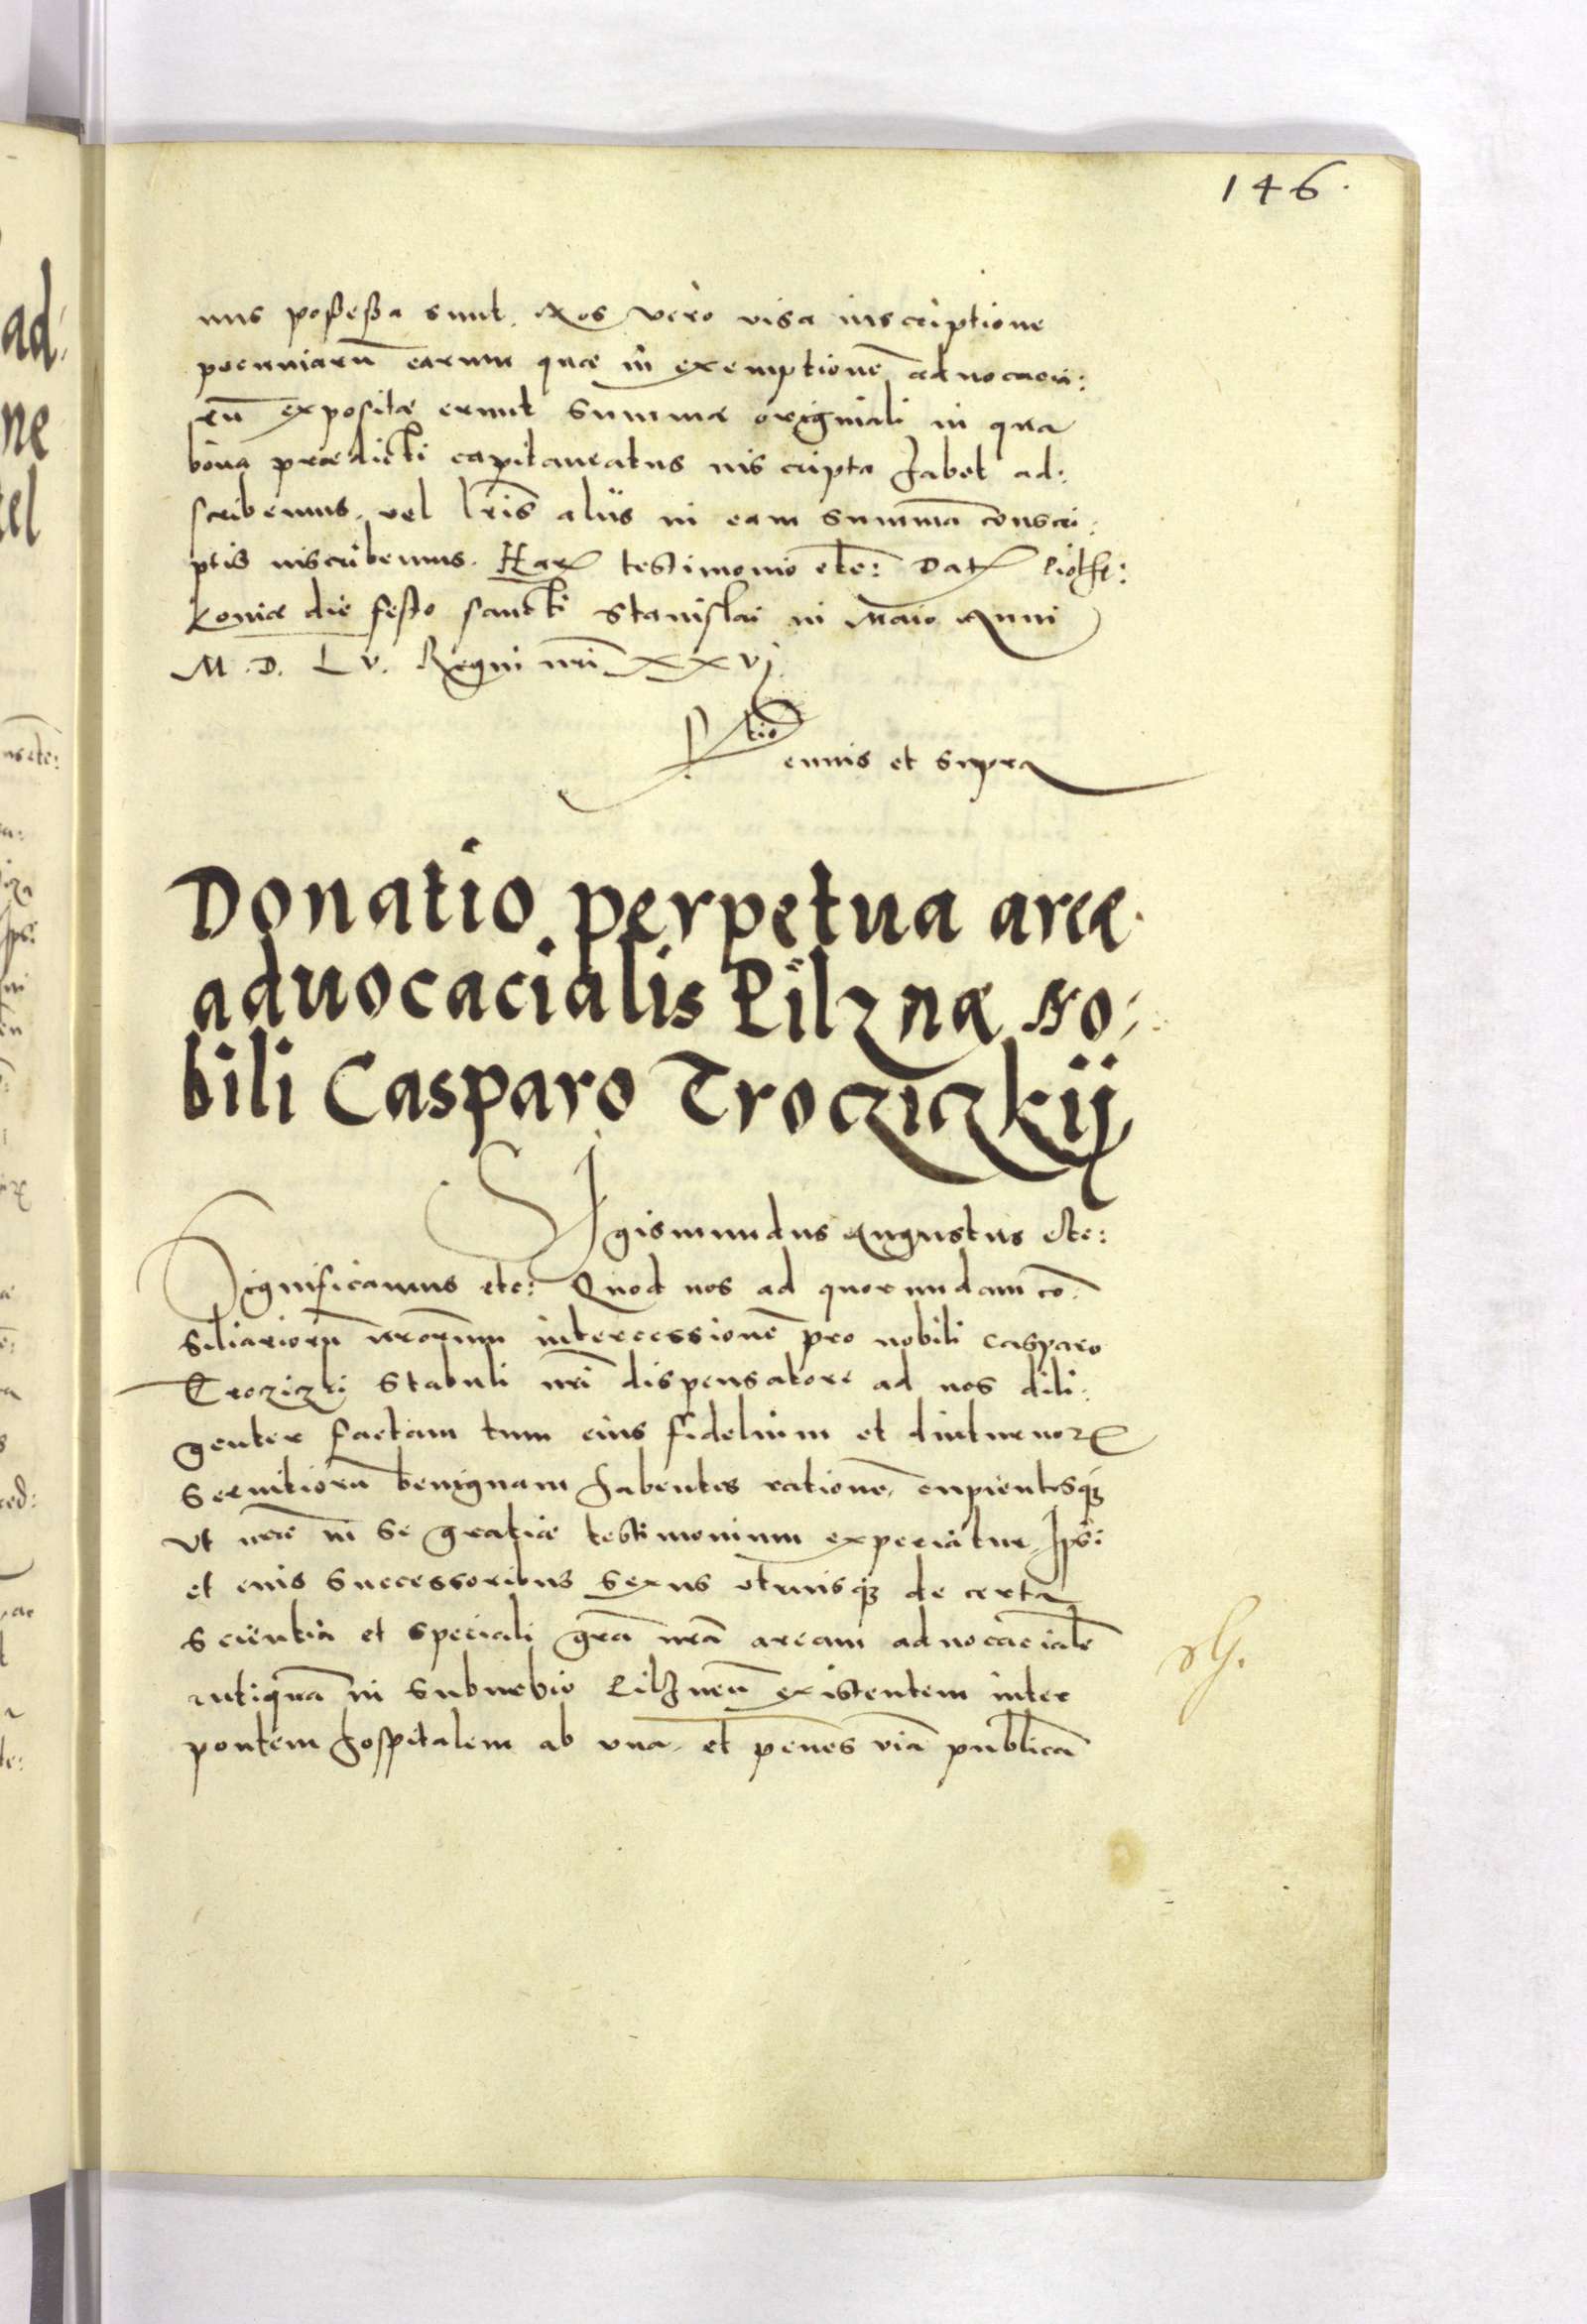 146.
nus posseßa sunt. Nos vero visa inscriptione
pecuniarũ earum quæ in exemptionẽ aduocacia:
rũ expositæ erunt summæ originali in qua
bona prædicti capitaneatus inscripta habet ad:
scribemus, vel lr̃is alijs in eam summã conscri:
ptis inscribemus. Harꝝ testimonio etc: Datꝝ Piothr:
koviæ die festo sancti Stanislai in Maio Anni
M. D. L v. Regni nr̃i xxvj
R
tio
ennis et supra
Donatio perpetua areæ
aduocacialis Pilznæ No:
bili Casparo Trocziczkij
SIgismundus Augustus etc:
Significamus etc: Quod nos ad quorundam cõ:
siliariorũ nr̃orum intercessionẽ pro nobili Casparo
Trocziczki stabuli nr̃i dispensatore ad nos dili:
genter factam tum eius fidelium et diuturnorꝝ
seruitiorũ benignam habentes rationẽ, cupientesqꝫ
vt nr̃æ in se gratiæ testimonium experiatur, Ipsi
et eius successoribus sexus vtriusqꝫ de certa
scientia et speciali gr̃a nr̃a aream aduocacialẽ
antiquã in suburbio Pilznẽn existentem inter
pontem hospitalem ab vna, et penes viã publicã